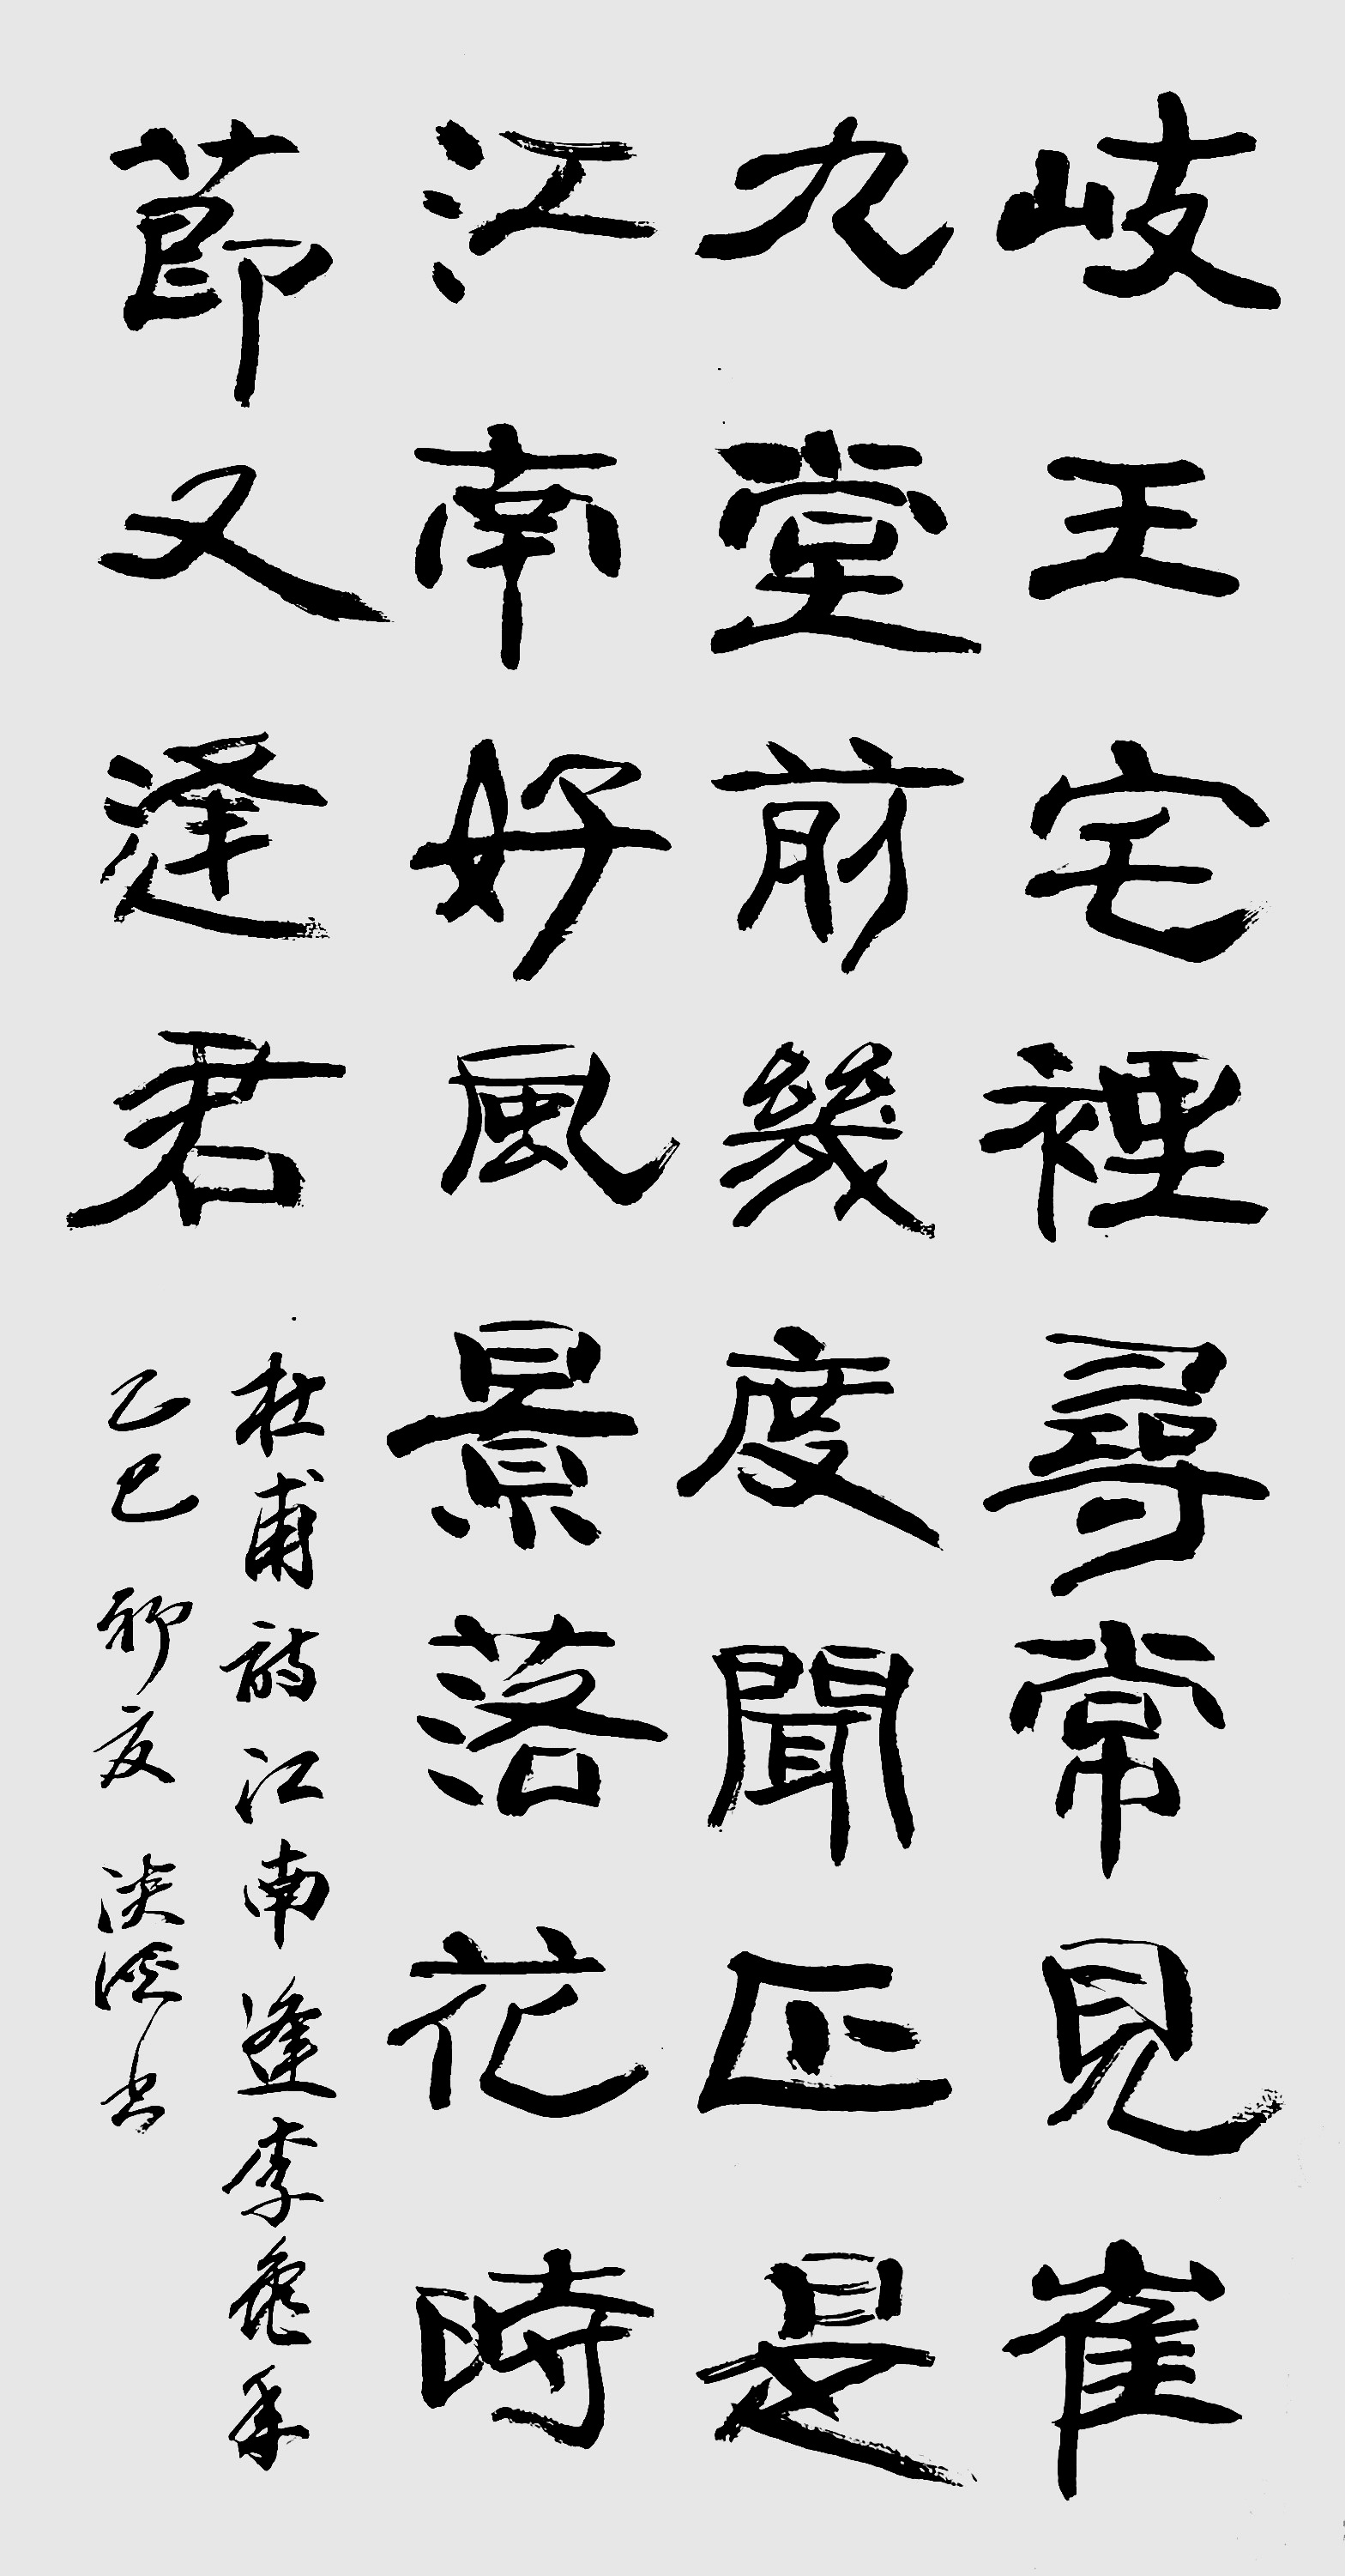 岐王宅裡尋常見崔
九堂前幾度聞正是
江南好風景落花時
節又逢君
杜甫詩江南逢李龜年
乙巳 初夏 淡